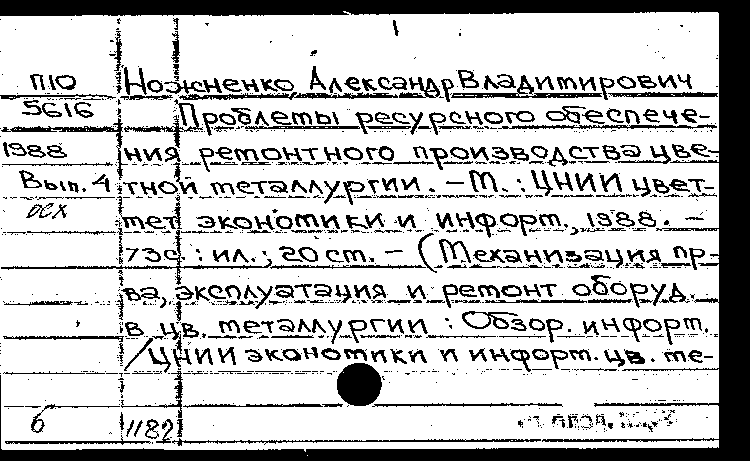 П10
5616
1988
Вып. 4
осх
Ножненко, Александр Владимирович
Проблемы ресурсного обеспече-
ния ремонтного производства цве-
тной металлургии. – М. : ЦНИИ цвет-
мет экономики и информ., 1988. –
73с. : ил. ; 20 см. – (Механизация пр-
ва, эксплуатация и ремонт оборуд.
в цв. металлургии : Обзор. информ.
/ ЦНИИ экономики и информ. цв. ме-
б
1182